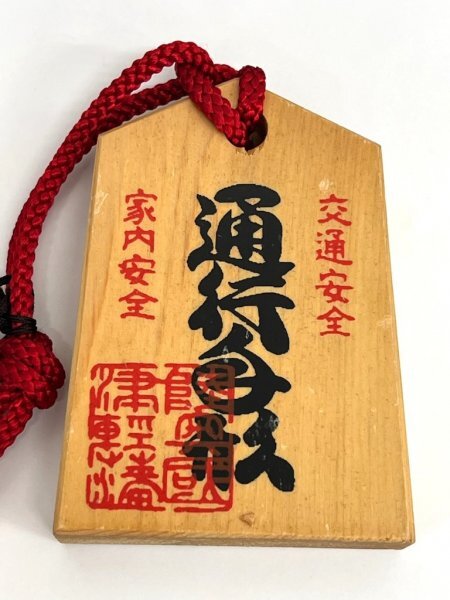 交通安全
通行手形
家内安全